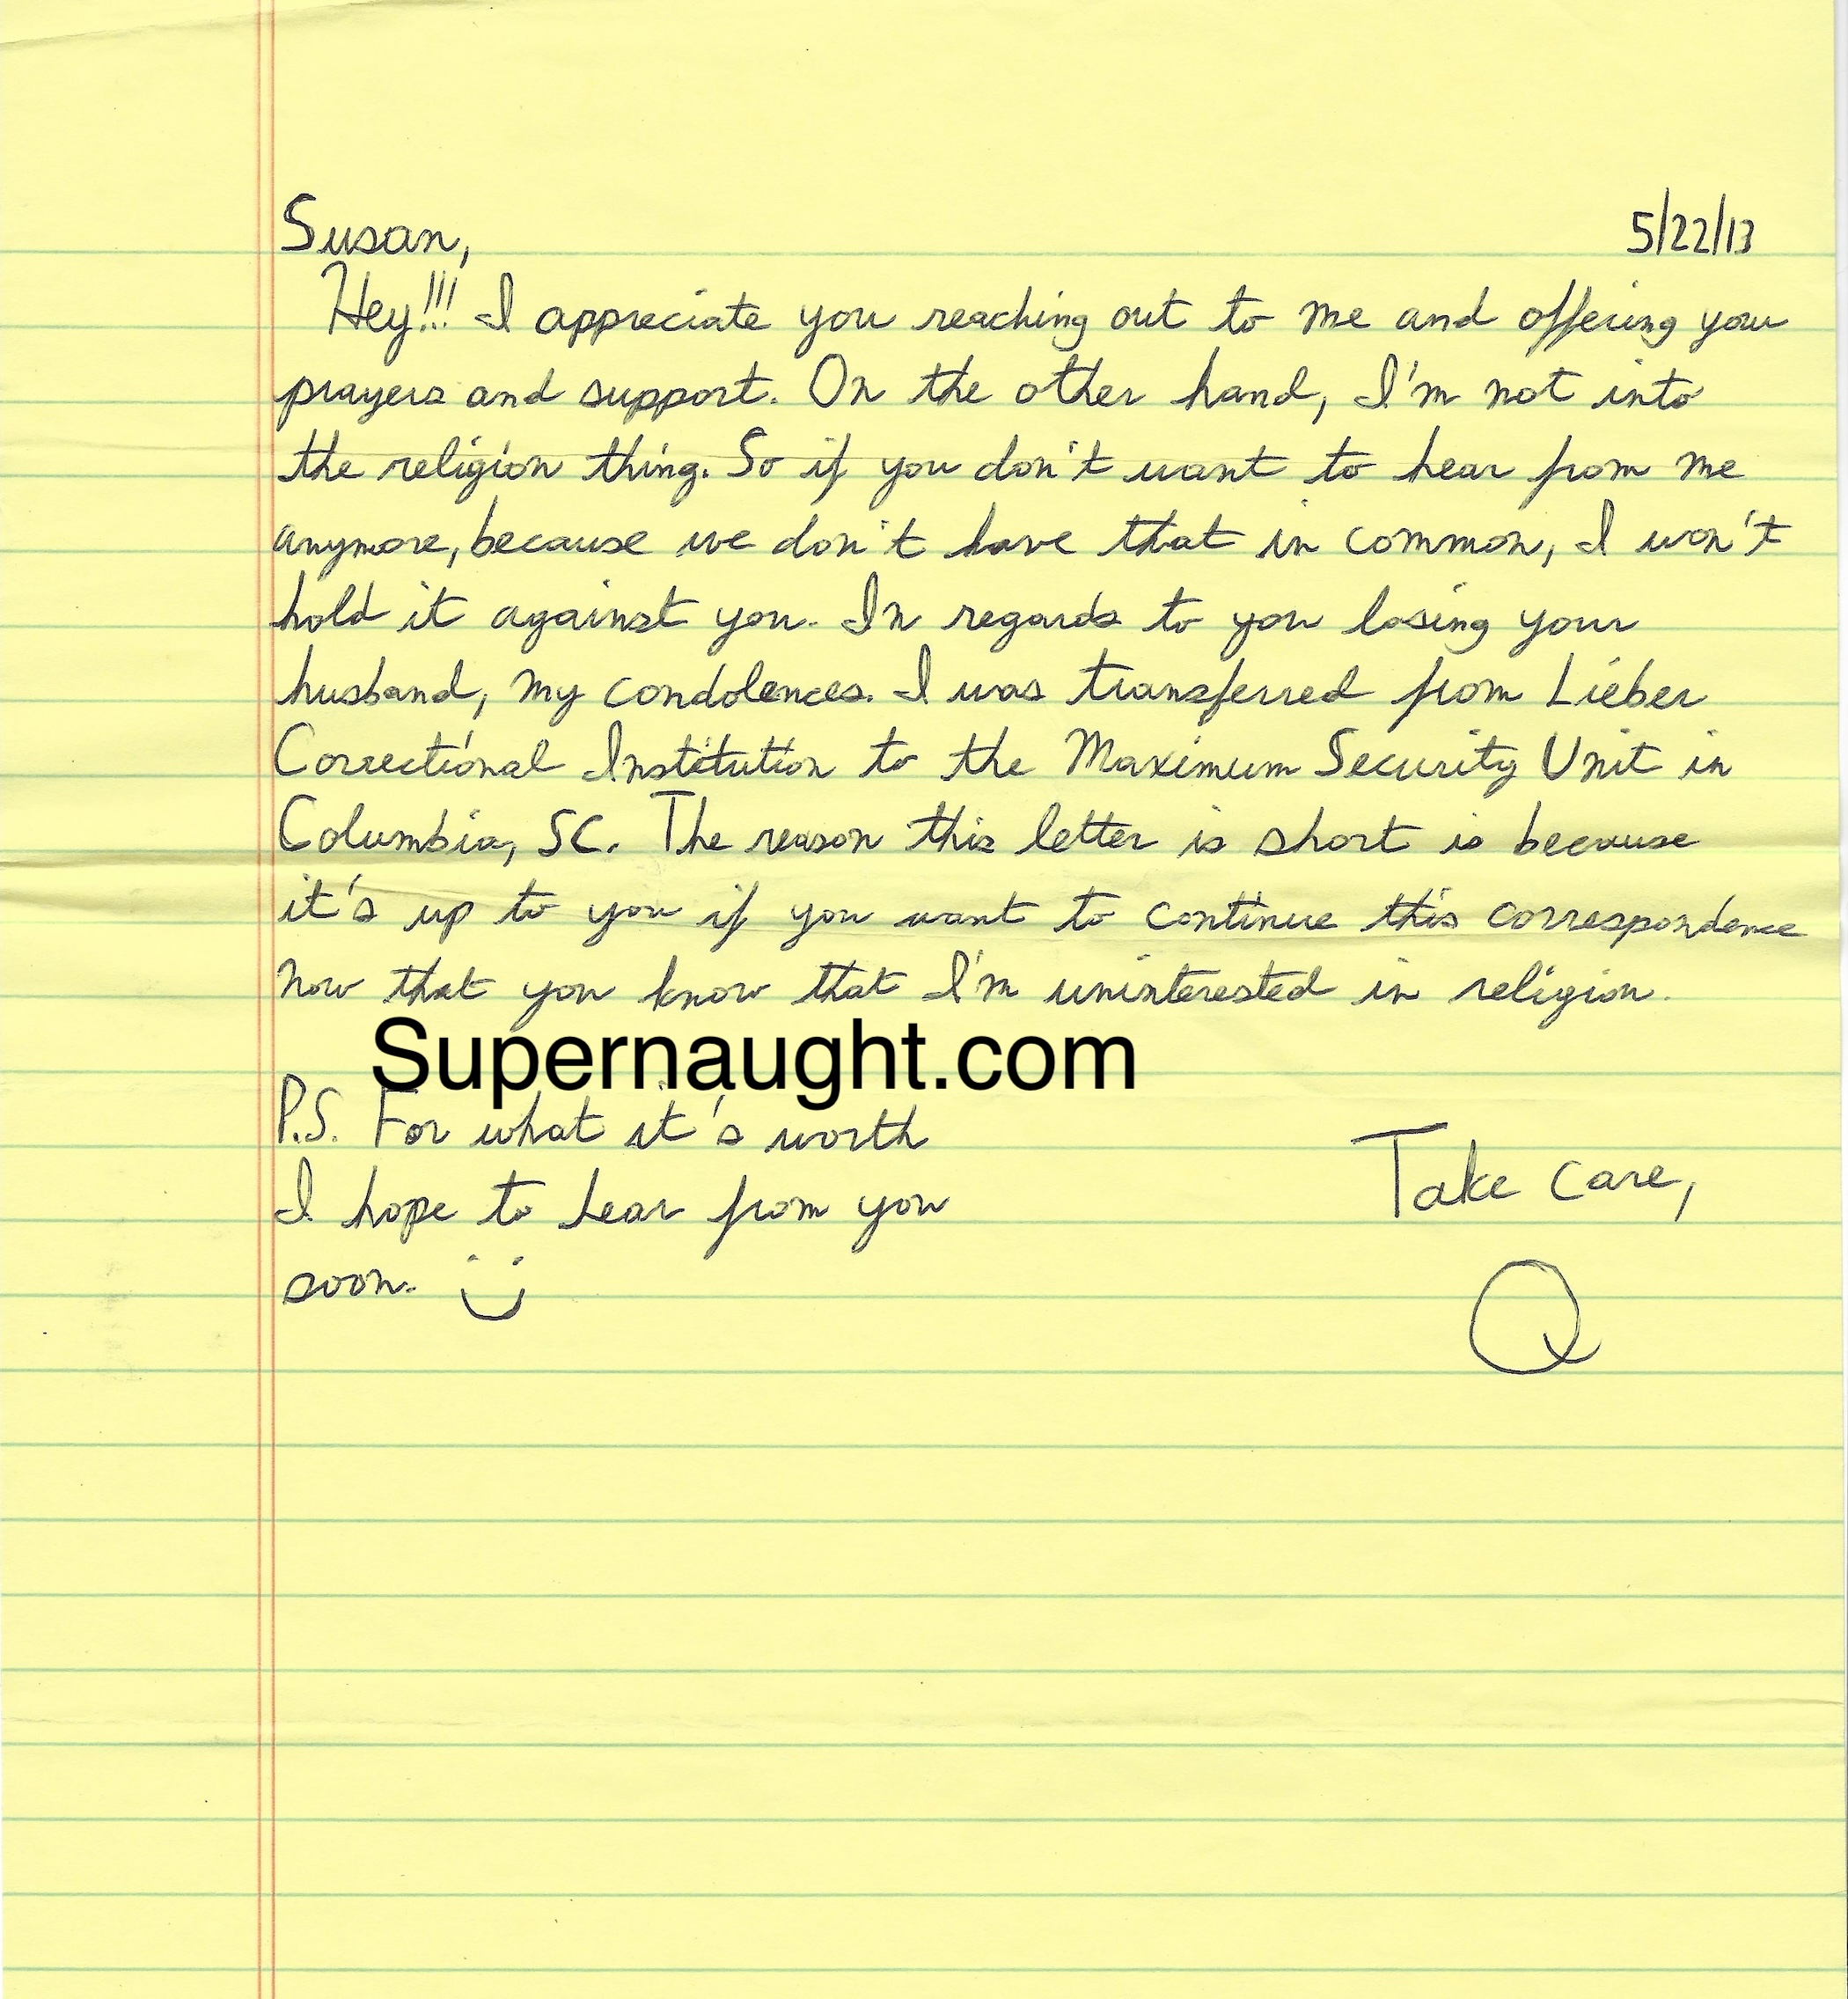 Susan, 5/22/13
Hey!!! I appreciate you reaching out to me and offering your
prayers and support. On the other hand, I'm not into
the religion thing. So if you don't want to hear from me
anymore, because we don't have that in common, I won't
hold it against you. In regards to you losing your
husband, my condolences. I was transferred from Lieber
Correctional Institution to the Maximum Security Unit in
Columbia, SC. The reason this letter is short is because
it's up to you if you want to continue this correspondence
now that you know that I'm uninterested in religion.
Supernaught.com
P.S. For what it's worth
I hope to hear from you
soon.
Take care,
Q